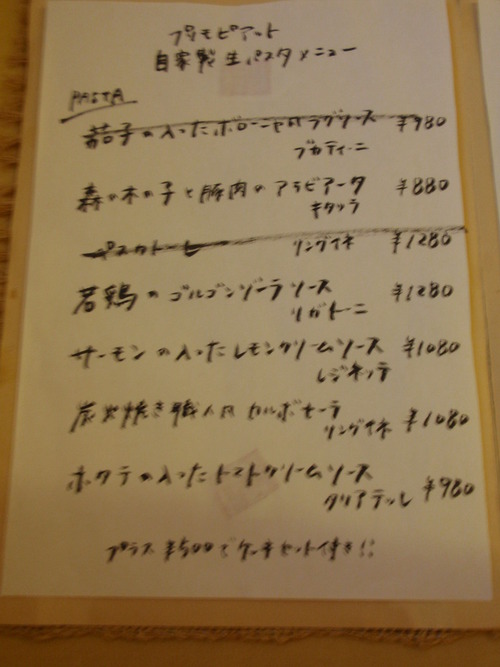 プリモピアット
自家製生パスタメニュー
PASTA
茄子の入ったボローニャ風ラグソース ¥980
ブカティーニ
森の木の子と豚肉のアラビアータ ¥880
キタッラ
ペスカトーレ リングイネ ¥1280
若鶏のゴルゴンゾーラソース ¥1280
リガトーニ
サーモンの入ったレモンクリームソース ¥1080
レジネッテ
炭火焼き職人風カルボナーラ ¥1080
リングイネ
ホタテの入ったトマトクリームソース ¥980
タリアテッレ
プラス¥500でケーキセット付き!!